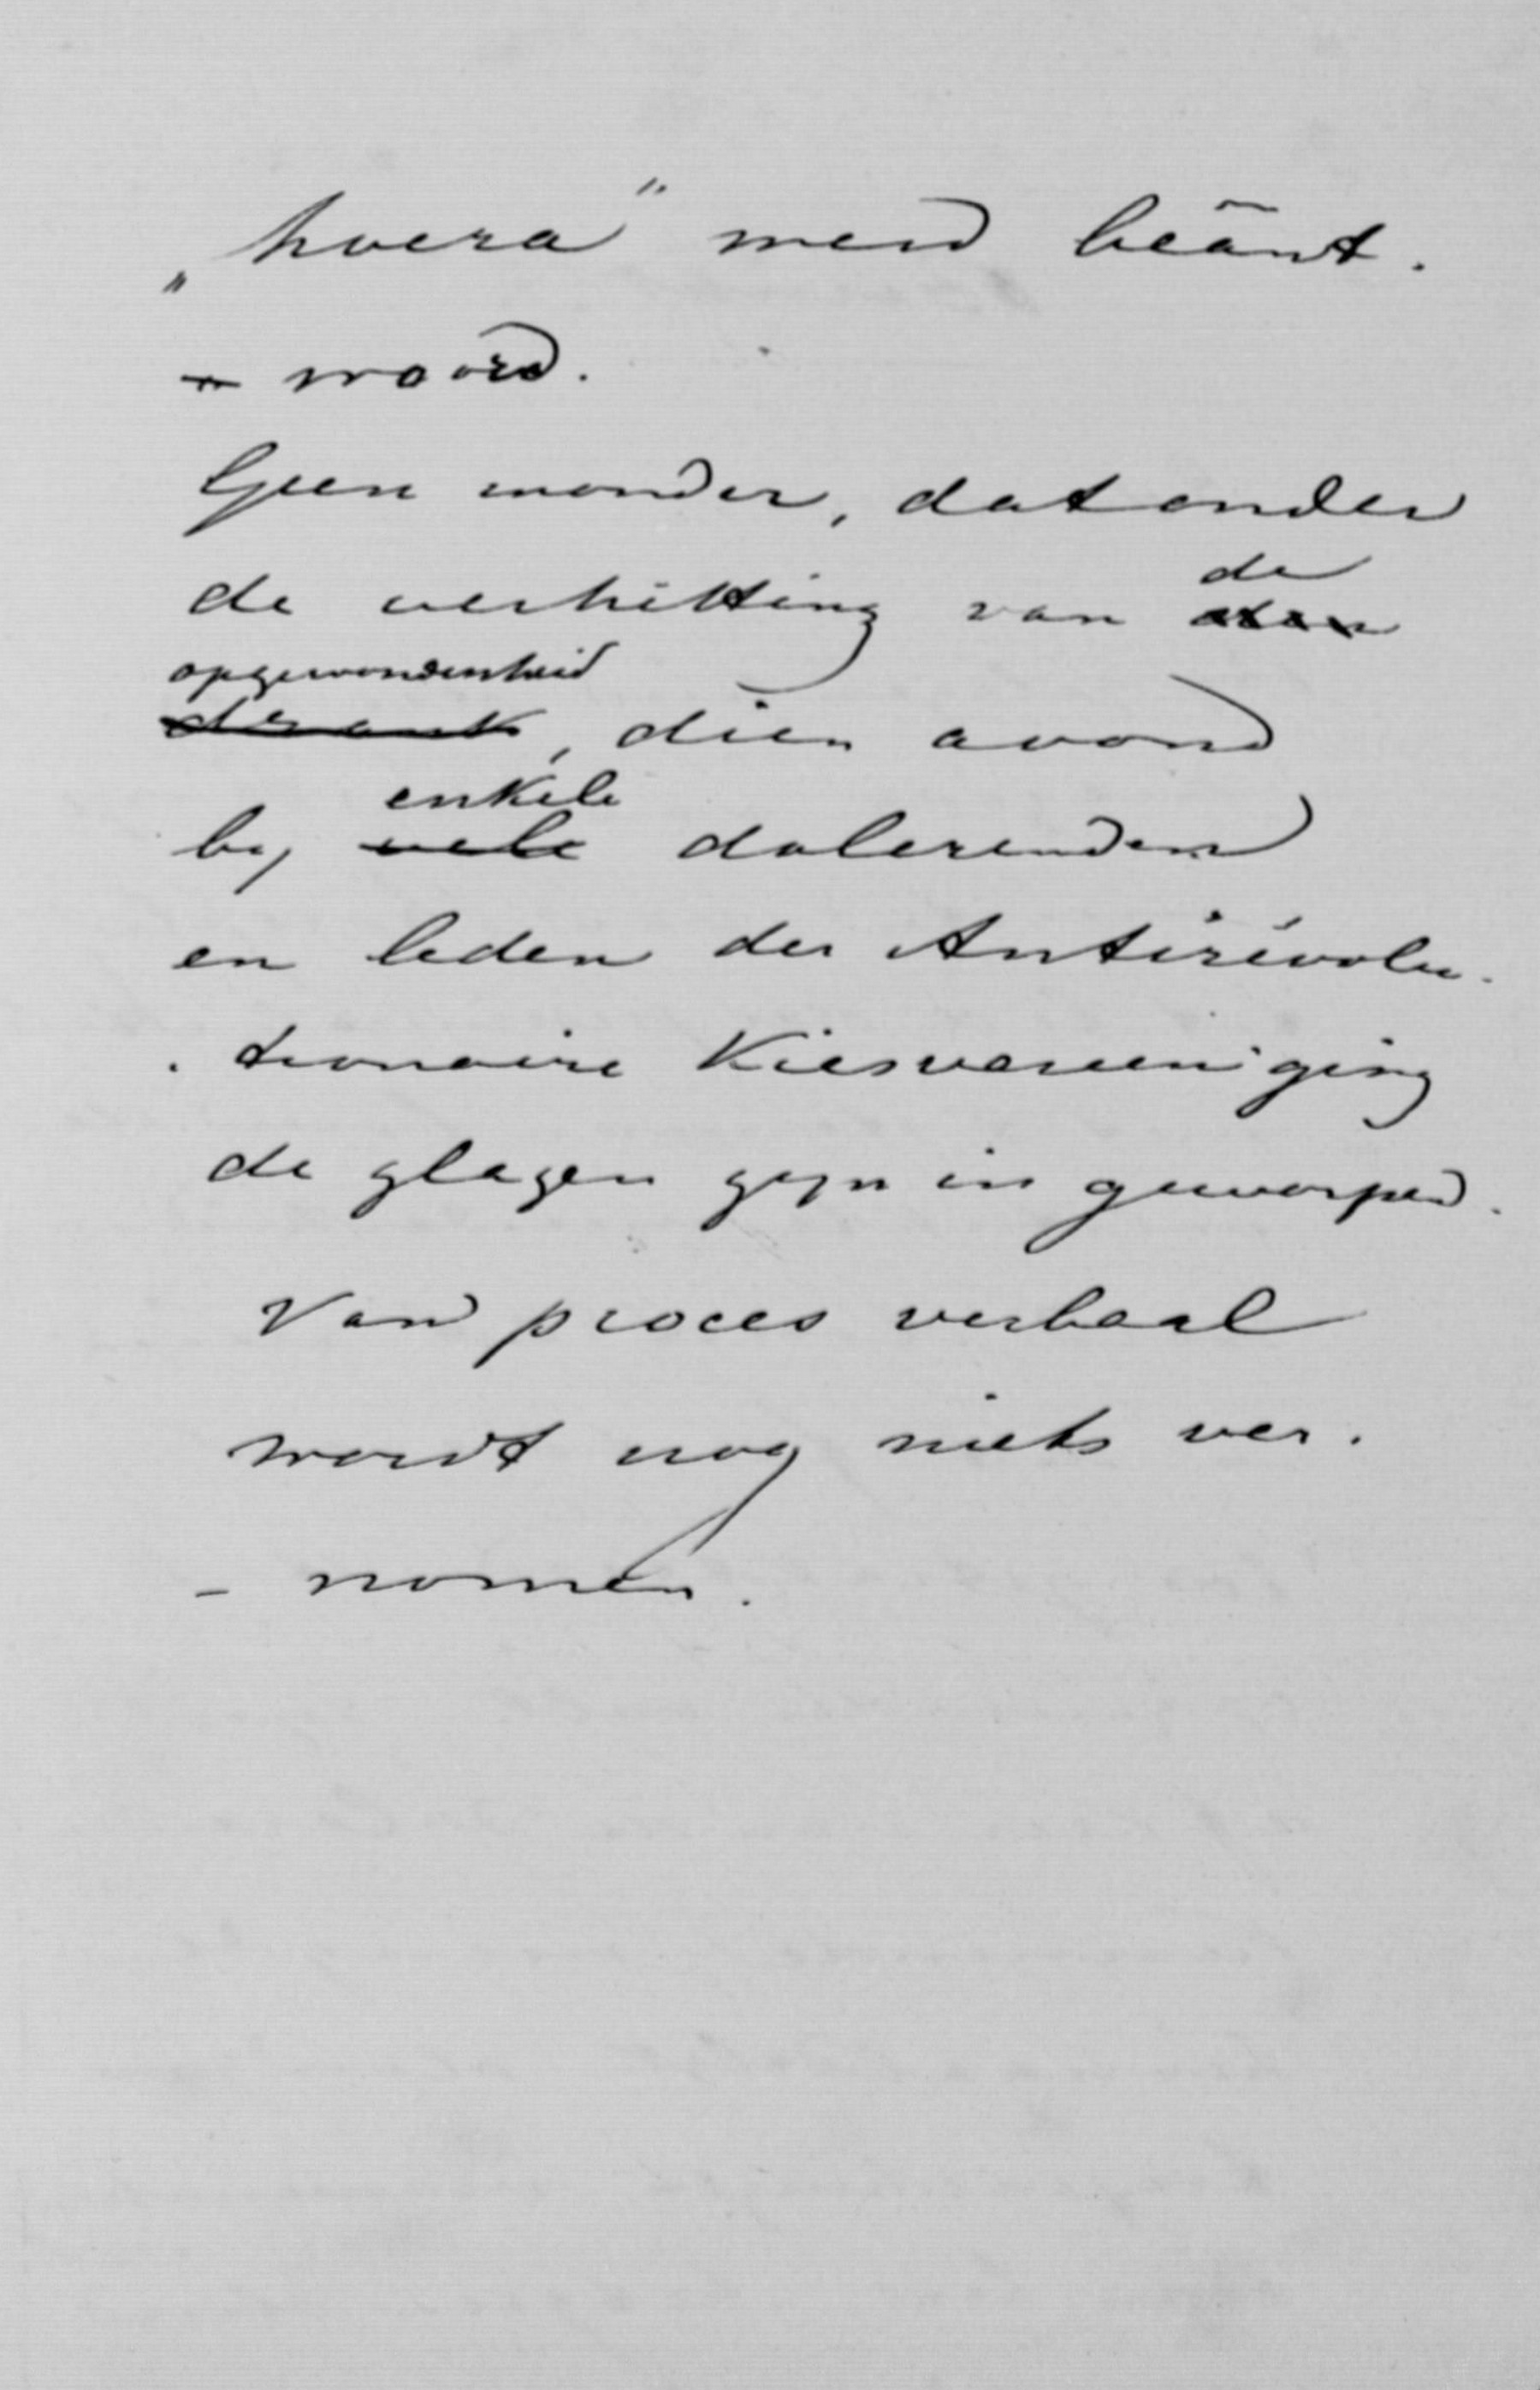 „hoera" werd beänt.
- woord.
Geen wonder, dat onder
de
de verhitting van den
opgewondenheid
drank, dien avond
enkele
by vele dolerenden
en leden der Antirévolu-
- tionaire Kiesvereeniging
de glazen zyn in geworpen.
Van proces verbaal
wordt nog niets ver-
- nomen.